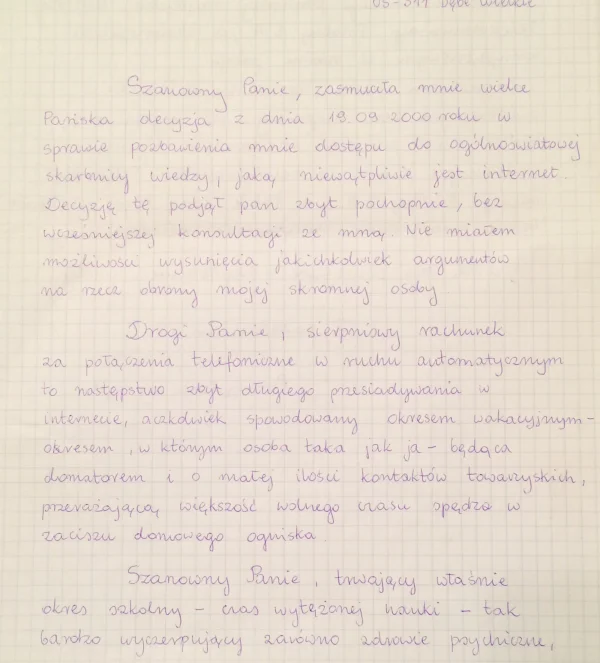 05-311 Dębe Wielkie
Szanowny Panie, zasmuciła mnie wielce
Pańska decyzja z dnia 19.09 2000 roku w
sprawie pozbawienia mnie dostępu do ogólnoświatowej
skarbnicy wiedzy, jaką niewątpliwie jest internet.
Decyzję tę podjął pan zbyt pochopnie, bez
wcześniejszej konsultacji ze mną. Nie miałem
możliwości wysunięcia jakichkolwiek argumentów
na rzecz obrony mojej skromnej osoby.
Drogi Panie, sierpniowy rachunek
za połączenia telefoniczne w ruchu automatycznym
to następstwo zbyt długiego przesiadywania w
internecie, aczkolwiek spowodowany okresem wakacyjnym -
okresem, w którym osoba taka jak ja - będąca
domatorem i o małej ilości kontaktów towarzyskich,
przeważającą większość wolnego czasu spędza w
zaciszu domowego ogniska.
Szanowny Panie, trwający właśnie
okres szkolny - czas wytężonej nauki - tak
bardzo wyczerpujący zarówno zdrowie psychiczne,